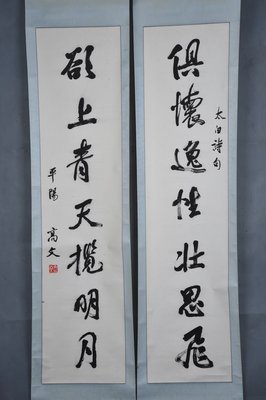 太白詩句
俱懷逸性壯思飛
欲上青天攬明月
平陽 高文